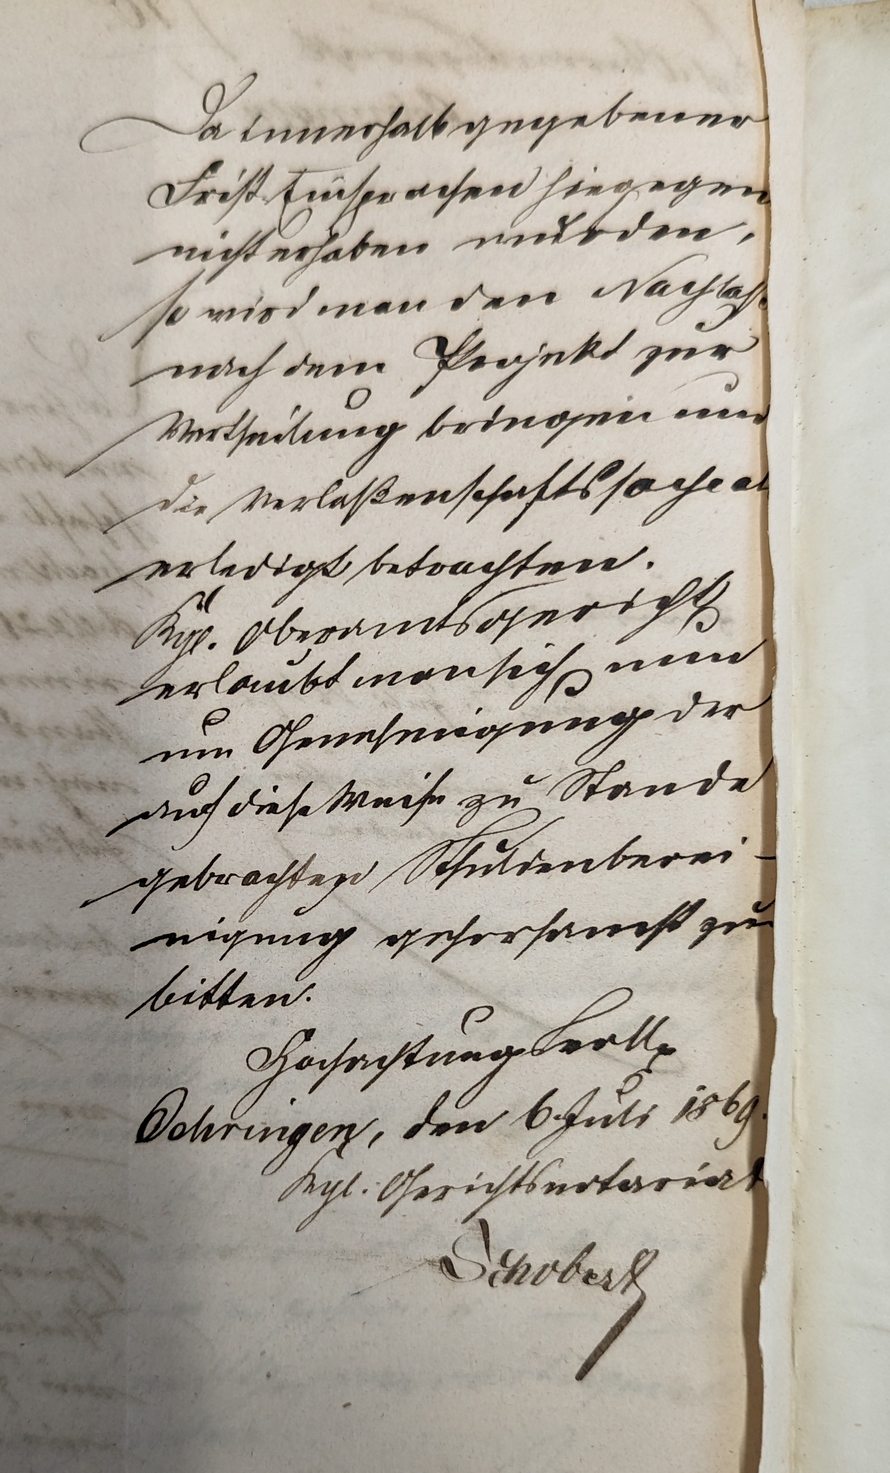 Da innerhalb gegebener
Frist Einsprachen hiegegen
nicht erhoben wurden,
so wird man den Nachlaß
nach dem Projekt zur
Vertheilung bringen und
die Verlaßenschaftssache als
erledigt betrachten.
Kgl. Oberamtsgericht
erlaubt man sich nun
um Genehmigung der
auf diese Weise zu Stande
gebrachten Schuldenberei-
nigung gehorsamst zu
bitten.
Hochachtungsvoll
Oehringen, den 6 Juli 1869.
Kgl. Gerichtsnotariat
Schobert